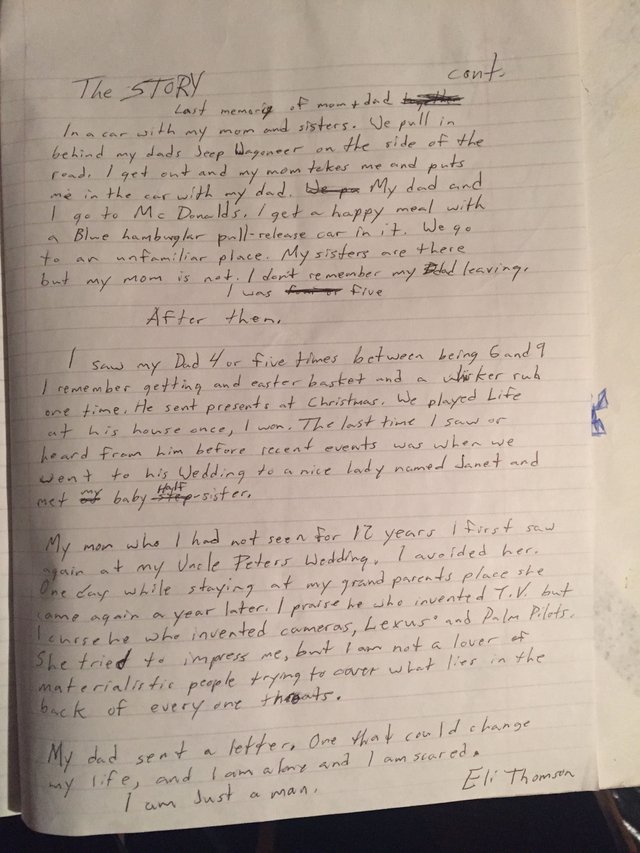 The STORY cont.
Last memory of mom + dad together
In a car with my mom and sisters. We pull in
behind my dads Jeep Wagoneer on the side of the
road. I get out and my mom takes me and puts
me in the car with my dad. We pu My dad and
I go to Mc Donalds. I get a happy meal with
a Blue hamburglar pull-release car in it. We go
to an unfamiliar place. My sisters are there
but my mom is not. I don't remember my Dad leaving.
I was four or five
After then.
I saw my Dad 4 or five times between being 6 and 9
I remember getting and easter basket and a whisker rub
one time. He sent presents at Christmas. We played Life
at his house once, I won. The last time I saw or
heard from him before recent events was when we
went to his Wedding to a nice lady named Janet and
met my baby step Half-sister.
My mom who I had not seen for 12 years I first saw
again at my Uncle Peters Wedding. I avoided her.
One day while staying at my grand parents place she
came again a year later. I praise he who invented T.V. but
I curse he who invented cameras, Lexus' and Palm Pilots.
She tried to impress me, but I am not a lover of
materialistic people trying to cover what lies in the
back of every one throats.
My dad sent a letter. One that could change
my life, and I am alone and I am scared.
I am Just a man.
Eli Thomson